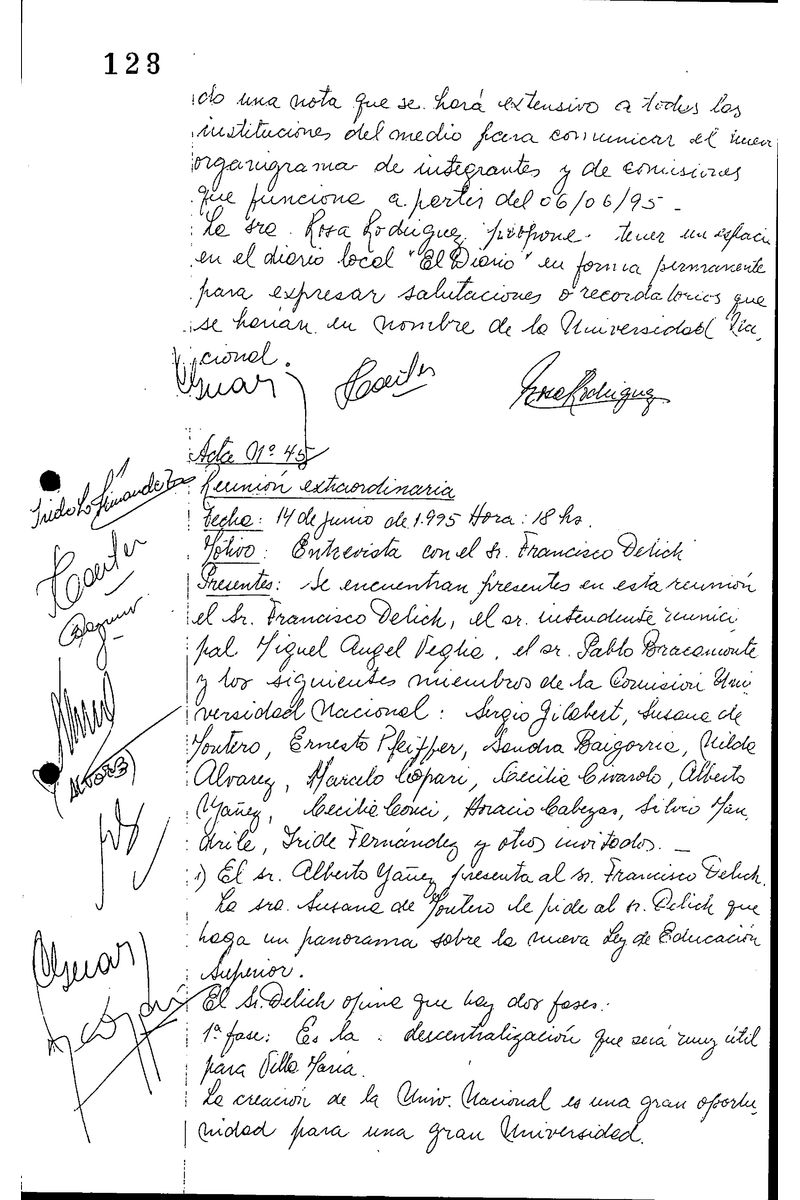 128
do una nota que se hará extensivo a todas las
instituciones del medio para comunicar el nuevo
organigrama de integrantes y de comisiones
que funciona a partir del 06/06/95 -
La sra. Rosa Rodriguez propone tener un espacio
en el diario local "El Diario" en forma permanente
para expresar salutaciones o recordatorios que
se harían en nombre de la Universidad Na,
cional.
Rosa Rodriguez
Acta Nº 45
Reunión extraordinaria
Fecha: 14 de junio de 1.995 Hora: 18 hs.
Motivo: Entrevista con el sr. Francisco Delich
Presentes: Se encuentran presentes en esta reunión
el Sr. Francisco Delich, el sr. intendente munici
pal Miguel Angel Veglia, el sr. Pablo Bracamonte
y los siguientes miembros de la Comisión Uni
versidad Nacional: Sergio Gilabert, Susana de
Montero, Ernesto Pfeiffer, Sandra Baigorria, Nilda
Alvarez, Marcelo Copari, Cecilia Civarolo, Alberto
Yáñez, Cecilia Conci, Horacio Cabezas, Silvio Man,
drile, Iride Fernández y otros invitados. -
1) El sr. Alberto Yáñez presenta al sr. Francisco Delich.
La sra. Susana de Montero le pide al sr. Delich que
haga un panorama sobre la nueva Ley de Educación
Superior.
El Sr. Delich opina que hay dos fases:
1ª fase: Es la descentralización que será muy útil
para Villa María.
La creación de la Univ. Nacional es una gran oportu,
nidad para una gran Universidad.